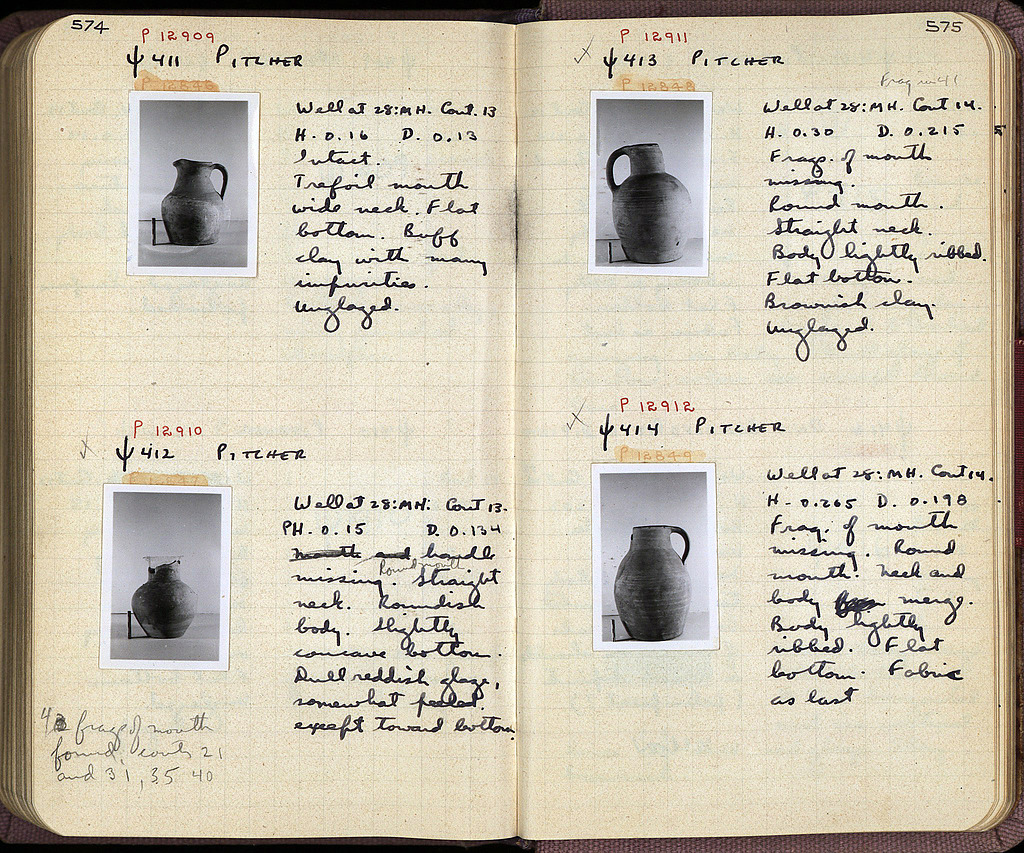 574
P 12909
ψ 411 PITCHER
P 12846
Well at 28:MH. Cont. 13
H. 0.16 D. 0.13
Intact.
Trefoil mouth
wide neck. Flat
bottom. Buff
clay with many
impurities.
Unglazed.
P 12910
ψ 412 PITCHER
P 12847
Well at 28:MH: Cont 13.
PH. 0.15 D. 0.134
mouth and handle
Round mouth
missing. Straight
neck. Roundish
body. Slightly
concave bottom.
Dull reddish glaze,
somewhat peeled.
except toward bottom.
frags of mouth
found, conts 21
and 31, 35 40
575
P 12911
ψ 413 PITCHER
P 12848
Frag in 41
Well at 28:MH. Cont 14.
H. 0.30 D. 0.215
Frags. of mouth
missing.
Round mouth.
Straight neck.
Body lightly ribbed.
Flat bottom.
Brownish clay.
Unglazed.
P 12912
ψ 414 PITCHER
P 12849
Well at 28:MH. Cont 14.
H. 0.265 D. 0.198
Frag. of mouth
missing. Round
mouth. Neck and
body merge.
Body lightly
ribbed. Flat
bottom. Fabric
as last